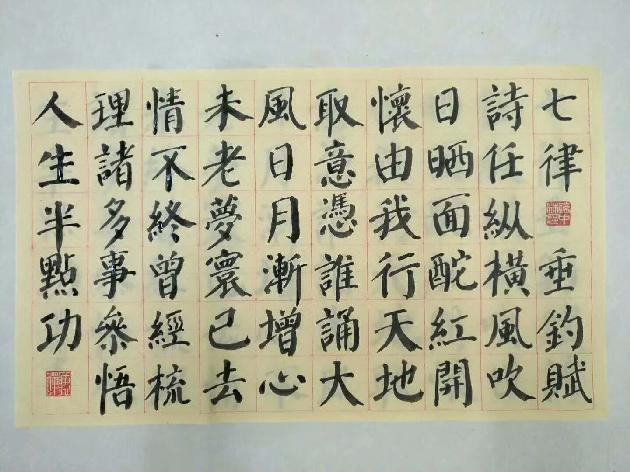 七律 垂釣賦
詩任縱橫風吹
日晒面酡紅開
懷由我行天地
取意憑誰誦大
風日月漸增心
未老夢寰已去
情不終曾經梳
理諸多事參悟
人生半點功